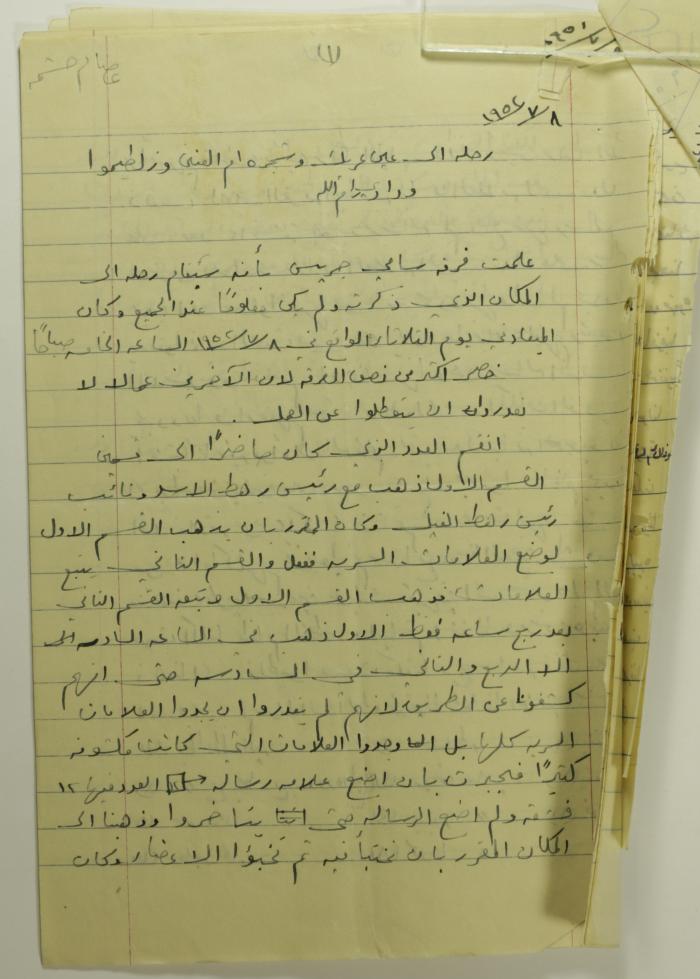 (١)
عصام حشمه
١٩٥٢/٧/٨
رحله الى عين عريك وشجره ام العنين وزلطيموا
ووادي رام الله
علمت فرقه سامي جريس بأنه ستقام رحله الى
المكان الذي ذكرته ولم يكن معلومًا عند الجميع وكان
الميعاد في يوم الثلاثاء الواقع في ١٩٥٢/٧/٨ الساعه الخامسه صباحًا
حضر اكثر من نصف الفرقه لان الآخرين عمالا لا
يقدروا ان يتعطلوا عن العمل .
انقسم العدد الذي كان حاضرًا الى قسمين
القسم الاول ذهب مع رئيس رهط الاسد ونائب
رئيس رهط الفيل وكان المقرر بان يذهب القسم الاول
لوضع العلامات السريه ففعل والقسم الثاني يتبع
العلامات فذهب القسم الاول وتبعه القسم الثاني
بعد ربع ساعه فقط الاول ذهب في الساعه السادسه الى
الا الربع والثاني في السادسه حتى انهم
كشفونا عن الطريق لانهم لم يقدروا ان يجدوا العلامات
السريه كلها بل وجدوا العلامات التي كانت مكشوفه
كثيرًا فجبرت بان اضع علامه رساله العدد فيها ١٢
ولم اضع الرساله حتى حضروا وذهبنا الى
المكان المقرر بان نختبأ فيه ثم تخبؤا الاعضاء وكان